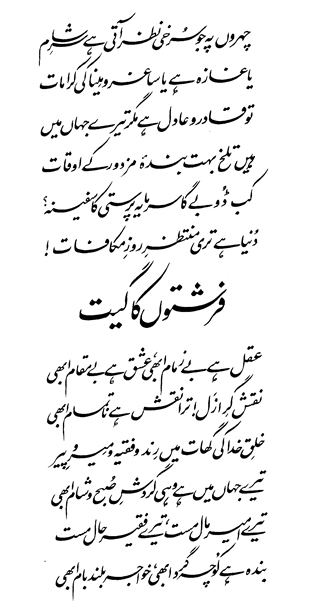 چہروں پہ جو سُرخی نظر آتی ہے سرِ شام
یا غازہ ہے یا ساغر و مینا کی کرامات
تو قادر و عادل ہے مگر تیرے جہاں میں
ہیں تلخ بہت بندۂ مزدور کے اوقات
کب ڈوبے گا سرمایہ پرستی کا سفینہ؟
دُنیا ہے تری منتظرِ روزِ مکافات!
فرشتوں کا گیت
عقل ہے بے زمام ابھی، عشق ہے بے مقام ابھی
نقش گرِ ازل! ترا نقش ہے ناتمام ابھی
خلقِ خدا کی گھات میں رِند و فقیہ و میر و پیر
تیرے جہاں میں ہے وہی گردشِ صُبح و شام ابھی
تیرے امیر مال مست، تیرے فقیر حال مست
بندہ ہے کوچہ گرد ابھی، خواجہ بلند بام ابھی